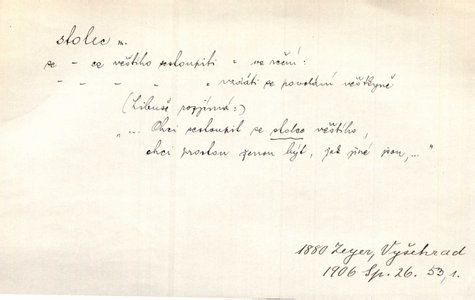 stolec m.
se - ce věštího sestoupiti " ve rčení:
- - - " " vzdáti se povolání věštkyně
(Libuše rozjímá:)
"... Chci sestoupit se stolce věštího,
chci prostou ženou být, jak jiné jsou,..."
1880 Zeyer, Vyšehrad
1906 Sp. 26. 53, 1.